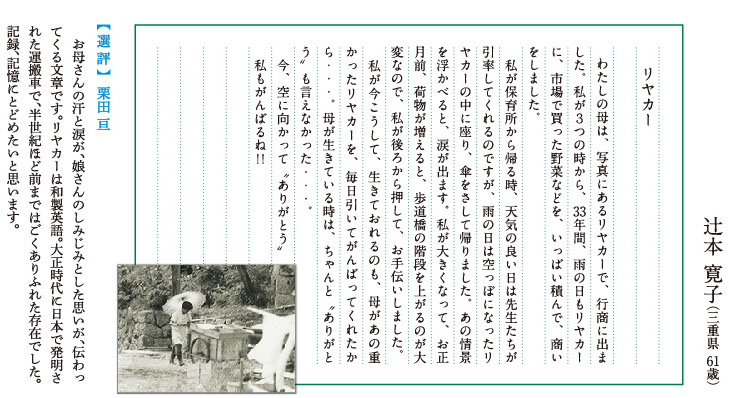 辻本 寛子（三重県 61歳）
リヤカー
わたしの母は、写真にあるリヤカーで、行商に出ま
した。私が３つの時から、33年間、雨の日もリヤカー
に、市場で買った野菜などを、いっぱい積んで、商い
をしました。
私が保育所から帰る時、天気の良い日は先生たちが
引率してくれるのですが、雨の日は空っぽになったリ
ヤカーの中に座り、傘をさして帰りました。あの情景
を浮かべると、涙が出ます。私が大きくなって、お正
月前、荷物が増えると、歩道橋の階段を上がるのが大
変なので、私が後ろから押して、お手伝いしました。
私が今こうして、生きておれるのも、母があの重
かったリヤカーを、毎日引いてがんばってくれたか
ら・・・。母が生きている時は、ちゃんと〝ありがと
う〟も言えなかった・・・。
今、空に向かって〝ありがとう〟
私もがんばるね!!
【選評】栗田 亘
お母さんの汗と涙が、娘さんのしみじみとした思いが、伝わっ
てくる文章です。リヤカーは和製英語。大正時代に日本で発明さ
れた運搬車で、半世紀ほど前まではごくありふれた存在でした。
記録、記憶にとどめたいと思います。